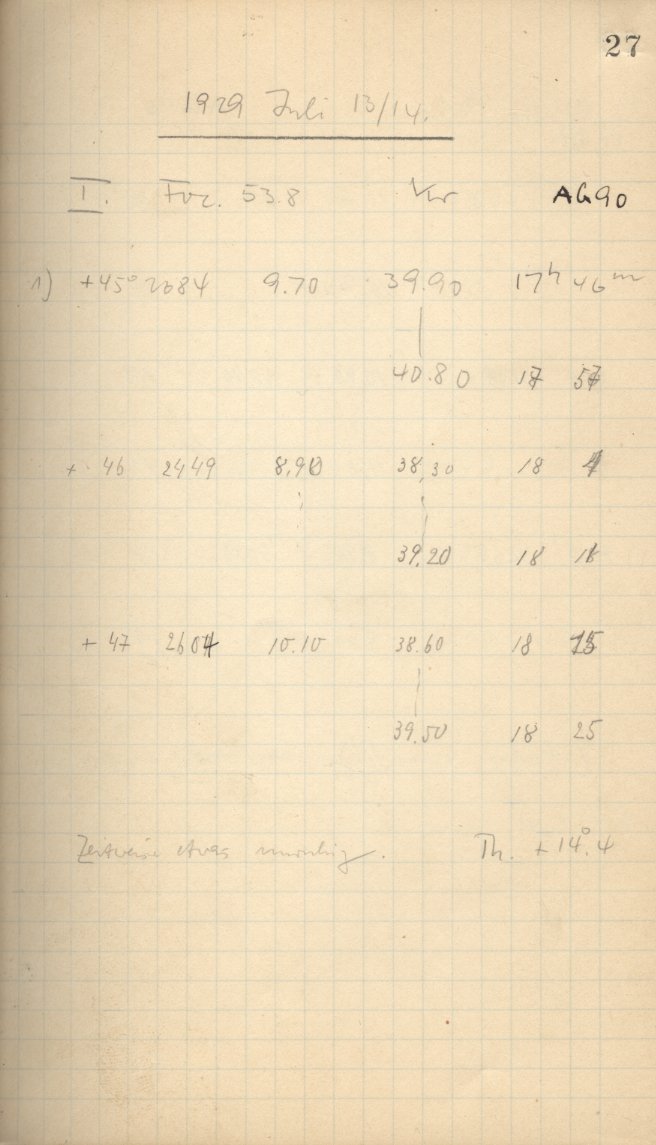 27
1929 Juli 13/14.
I. Foc. 53.8 AG90
1) +45° 2684 9.70 39.90 17h 46m
40.80 17 57
+ 46 2449 8,90 38,30 18 4
39,20 18
+ 47 2604 10.10 38.60 18 15
39.50 18 25
Zeitweise etwas unruhig. Th. +14°.4